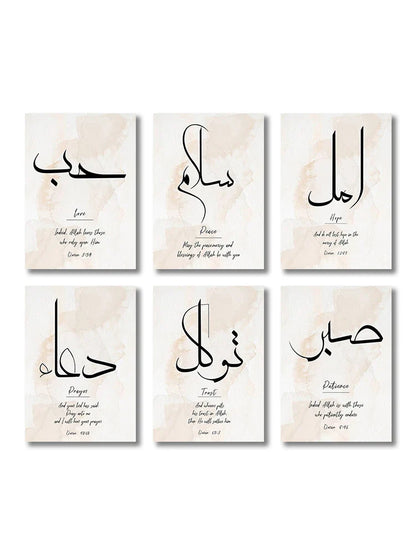 حب
Love
Indeed, Allah loves those
who rely upon Him
Quran 3:159
سلام
Peace
May the peace mercy and
blessings of Allah be with you
امل
Hope
And do not lose hope in the
mercy of Allah
Quran 12:87
دعاء
Prayer
And your Lord has said
Pray unto me
and I will hear your prayer
Quran 40:60
توكل
Trust
And whoever puts
his trust in Allah,
then He will suffice him
Quran 65:3
صبر
Patience
Indeed Allah is with those
who patiently endure
Quran 8:46